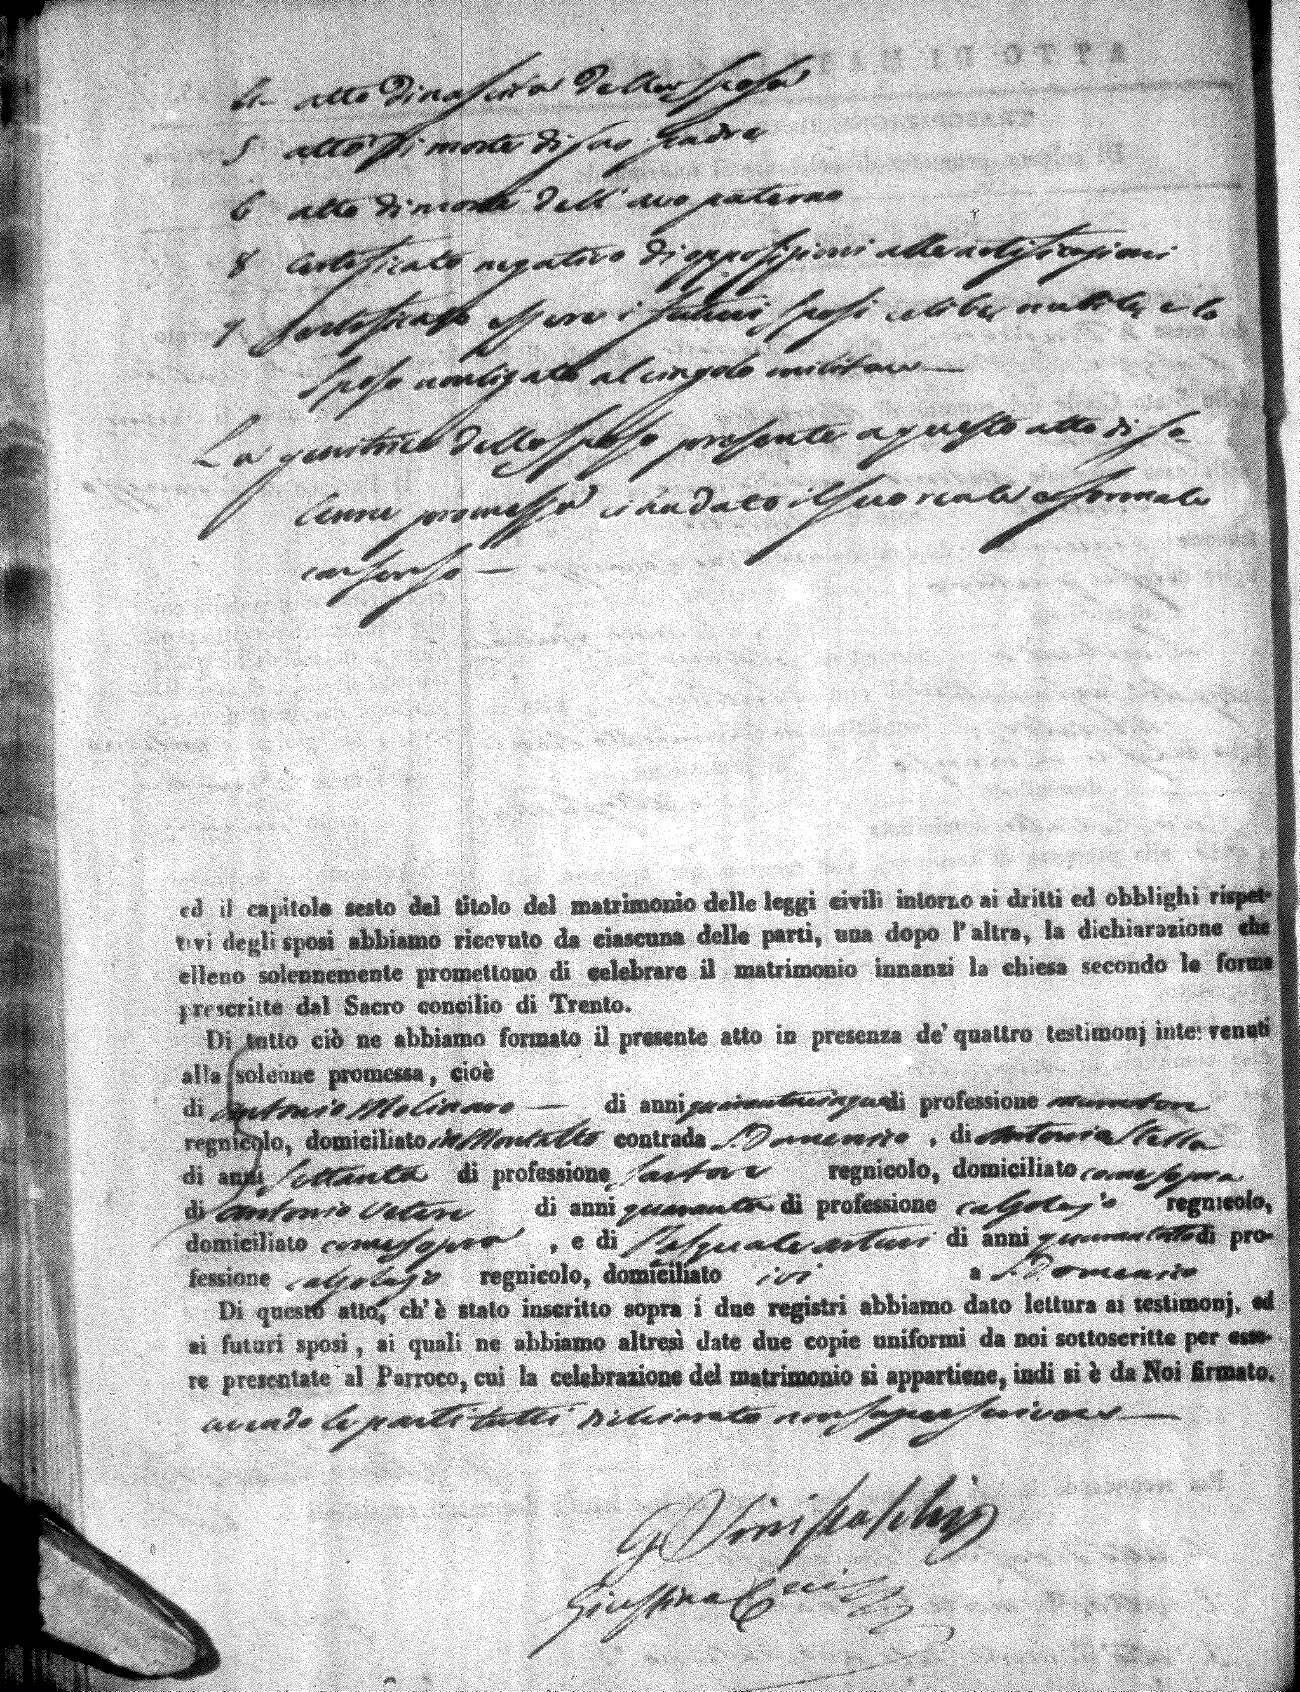 4 atto di nascita della sposa
5 atto di morte di suo Padre
6 atto di morte dell' avo paterno
8 Certificato negativo di opposizioni alle notificazioni
7 Certificato essere i futuri sposi celibe, nubile, e lo
sposo non ligato al cingolo militare —
La genitrice dello sposo presente a questo atto di so-
lenne promessa ci ha dato il suo reale e formale
consenso —
ed il capitolo sesto del titolo del matrimonio delle leggi civili intorno ai dritti ed obblighi rispet-
tivi degli sposi abbiamo ricevuto da ciascuna delle parti, una dopo l'altra, la dichiarazione che
elleno solennemente promettono di celebrare il matrimonio innanzi la chiesa secondo le forme
prescritte dal Sacro concilio di Trento.
Di tutto ciò ne abbiamo formato il presente atto in presenza de' quattro testimonj intervenuti
alla solenne promessa, cioè
di Antonio Molinaro — di anni quarantacinque di professione muratore
regnicolo, domiciliato in Montalto contrada S. Domenico , di Antonio Stella
di anni Settanta di professione Sartore regnicolo, domiciliato come sopra
di Antonio Vetere di anni quaranta di professione calzolajo regnicolo,
domiciliato come sopra , e di Pasquale Arturi di anni quarantotto di pro-
fessione calzolajo regnicolo, domiciliato ivi a S. Domenico
Di questo atto, ch' è stato inscritto sopra i due registri abbiamo dato lettura ai testimonj, ed
ai futuri sposi, ai quali ne abbiamo altresì date due copie uniformi da noi sottoscritte per esse-
re presentate al Parroco, cui la celebrazione del matrimonio si appartiene, indi si è da Noi firmato.
avendo le parti tutti dichiarato non saper scrivere —